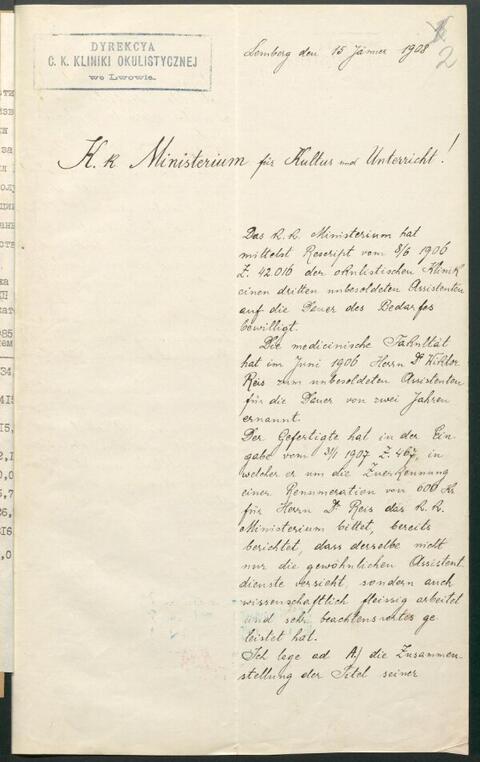 DYREKCYA
C. K. KLINIKI OKULISTYCZNEJ
we Lwowie.
Lemberg den 15 Jänner 1908
2
K. k Ministerium für Kultur und Unterricht!
Das k. k. Ministerium hat
mittelst Rescript vom 8/6 1906
Z. 42.016 der okulistischen Klinik
einen dritten unbesoldeten Assistenten
auf die Dauer des Bedarfes
bewilligt.
Die medicinische Fakultät
hat im Juni 1906 Herrn Dr Wiktor
Reis zum unbesoldeten Assistenten
für die Dauer von zwei Jahren
ernannt.
Der Gefertigte hat in der Ein-
gabe vom 31/1 1907 Z. 467, in
welcher er um die Zuerkennung
einer Renumeration von 600 Kr.
für Herrn Dr Reis das k. k.
Ministerium bittet, bereits
berichtet, dass derselbe nicht
nur die gewöhnlichen Assistent.
dienste versieht, sondern auch
wissenschaftlich fleissig arbeitet
und sehr beachtenswertes ge-
leistet hat.
Ich lege ad A) die Zusammen-
stellung der Titel seiner